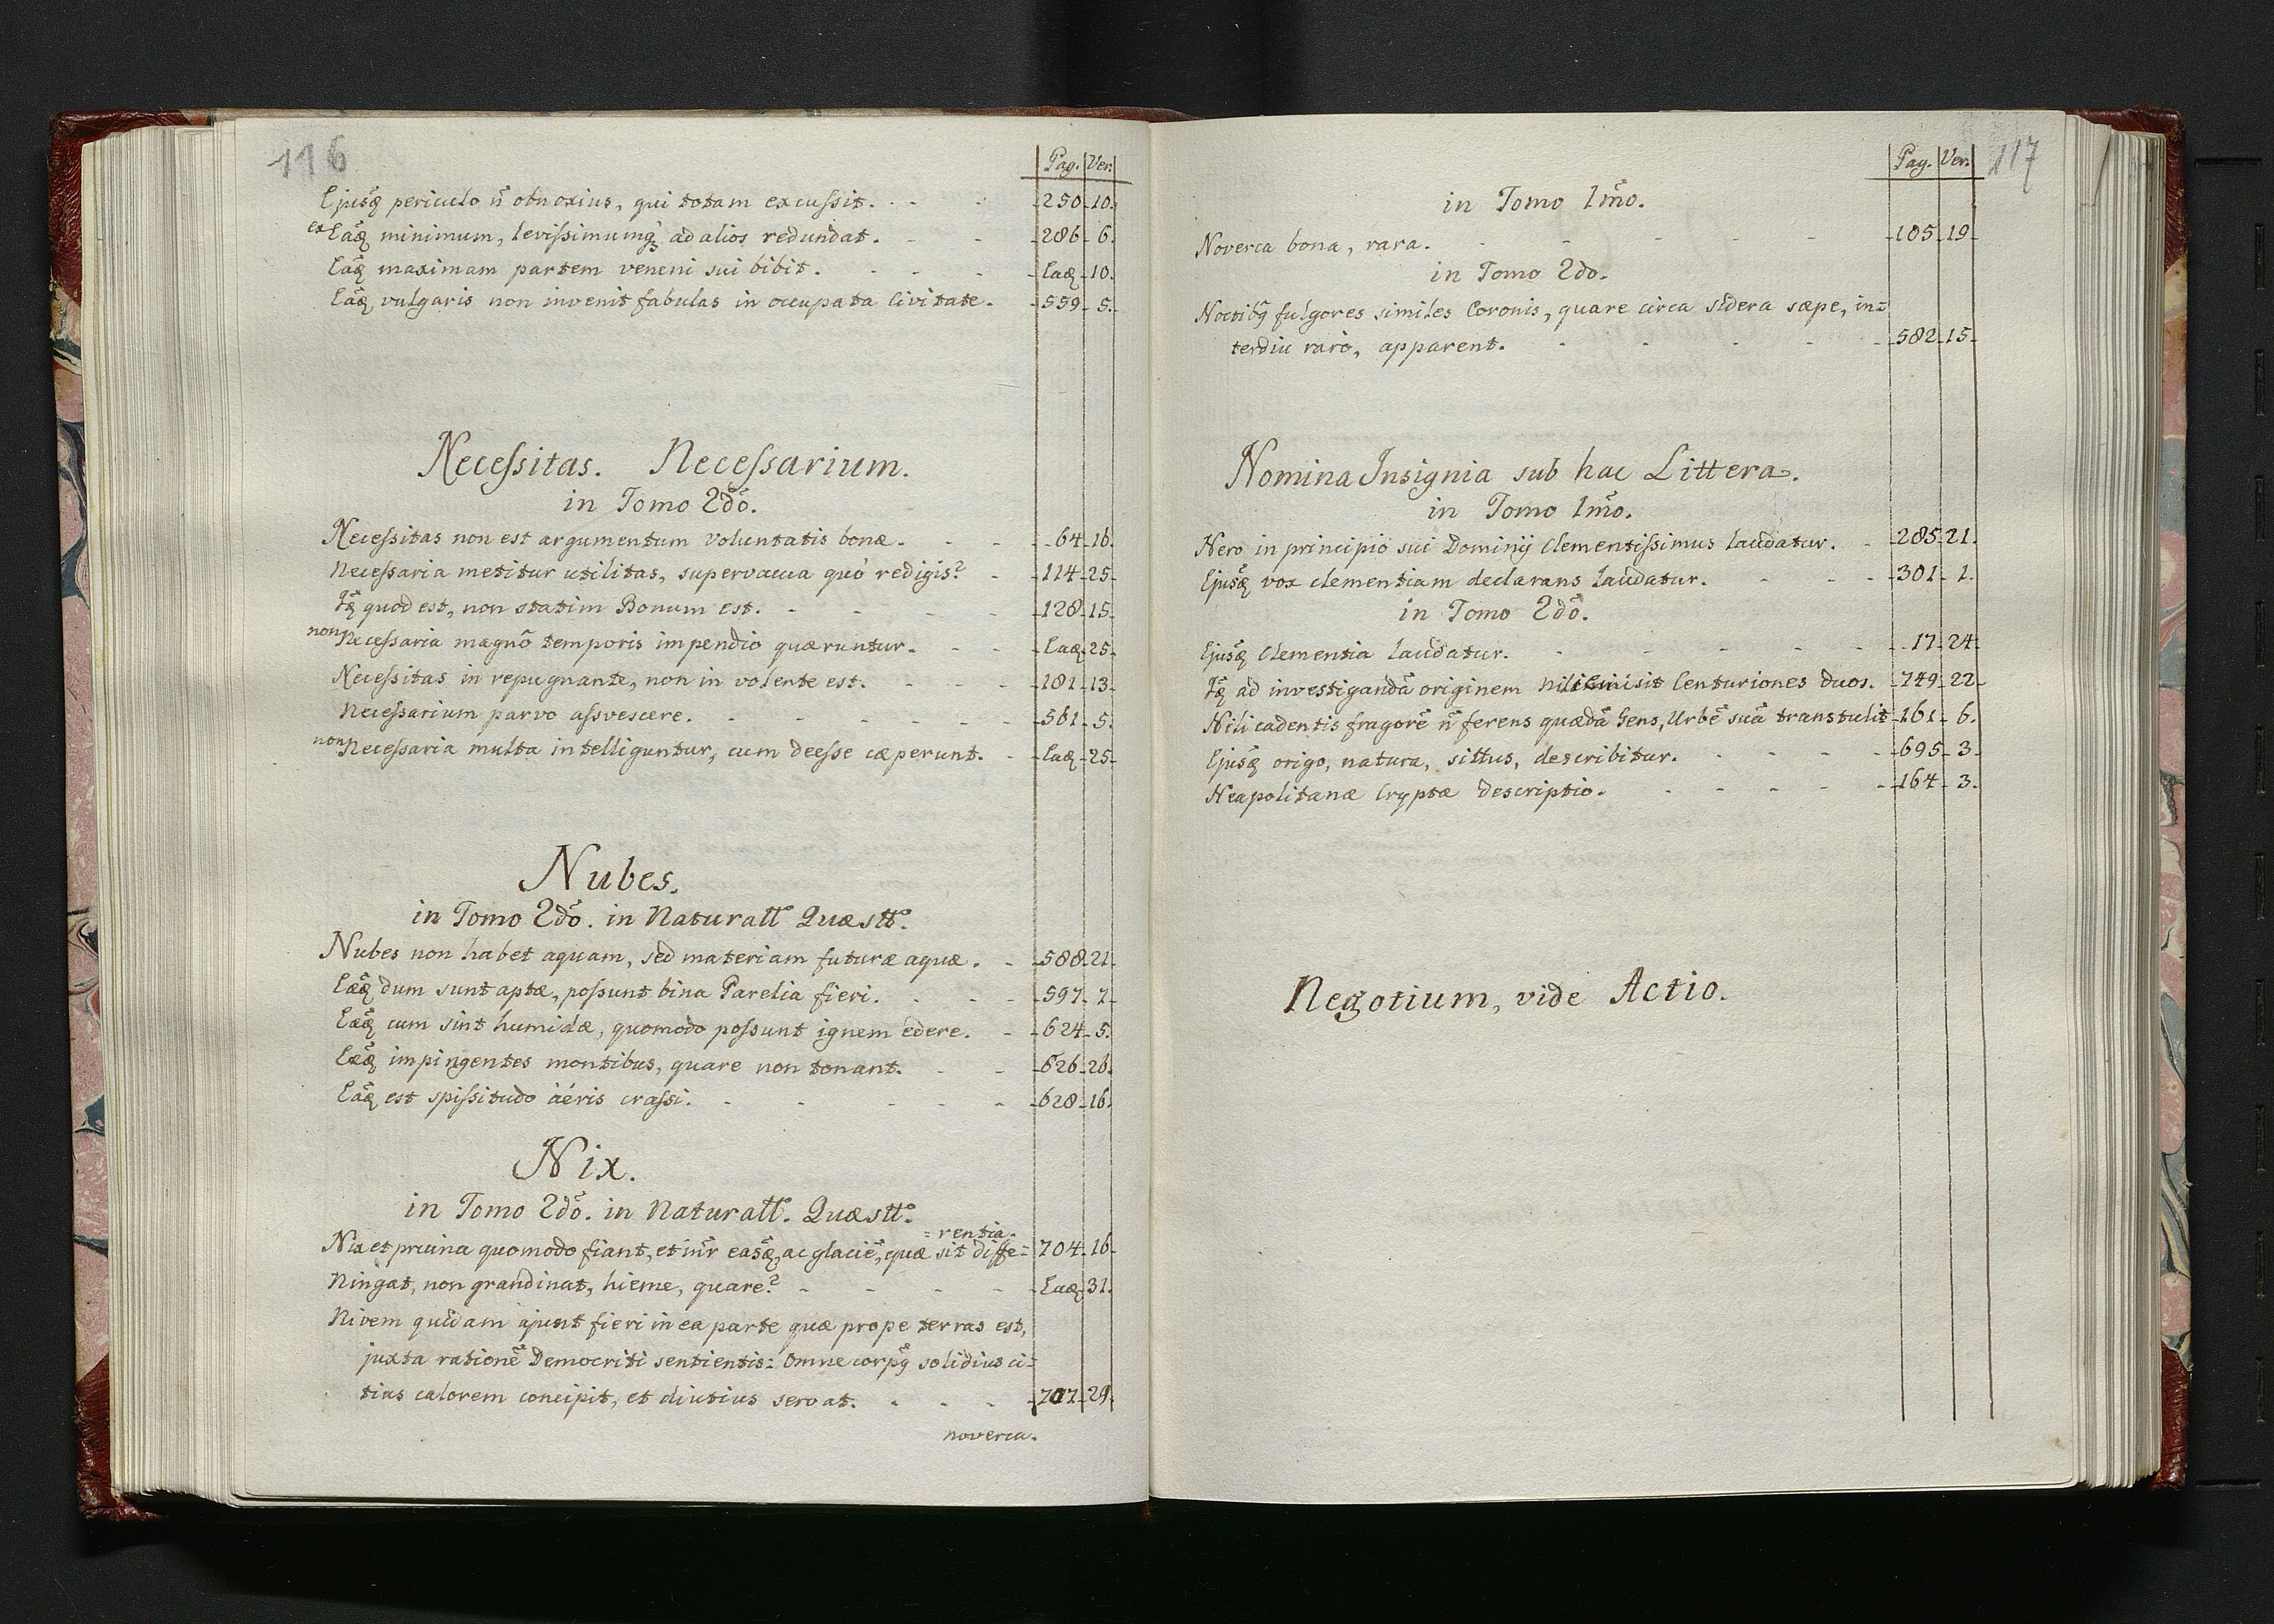 116
Pag. Ver.
Ejusq̃ periculo ñ obnoxius, qui totam excussit. 250 10.
et Eaq̃ minimum, levissimumq; ad alios redundat. 286 6.
Eaq̃ maximam partem veneni sui bibit. Eaq 10.
Eaq̃ vulgaris non invenit fabulas in occupata Civitate. 559 5.
Necessitas. Necessarium.
in Tomo 2dõ.
Necessitas non est argumentum voluntatis bonæ. 64 16.
Necessaria metitur utilitas, supervacua quò redigis? 114 25
Iq̃ quod est, non statim Bonum est. 128 15
non Necessaria magnõ temporis impendio quæruntur. Eaq 25
Necessitas in repugnante, non in volente est. 181 13
Necessarium parvo assvescere. 561 5.
non Necessaria multa intelliguntur, cum deesse cæperunt. Eaq 25
Nubes.
in Tomo 2dõ. in Naturall. Quæstt.
Nubes non habet aquam, sed materiam futuræ aquæ. 588 21
Eæq̃ dum sunt aptæ, possunt bina Parelia fieri. 597 7
Eæq̃ cum sint humidæ, quomodo possunt ignem edere. 624 5.
Eæq̃ impingentes montibus, quare non tonant. 626 26.
Eaq̃ est spissitudo àéris crassi. 628 16.
Nix.
in Tomo 2dõ. in Naturall. Quæstt.
=rentia.
Nix et pruina quomodo fiant, et inr̃ easq̃, ac glaciẽ, quæ sit diffe= 704 16
Ningat, non grandinat, hieme, quare? Eaq 31.
Nivem quidam ajunt fieri in ea parte quæ prope terras est,
juxta rationẽ Democriti sentientis: Omne corpq̃ solidius ci=
tius calorem concipit, et diutius servat. 707 29.
noverca.
117
Pag. Ver.
in Tomo 1mõ.
Noverca bona, rara. 105 19
in Tomo 2do.
Noctibq̃ fulgores similes Coronis, quare circa sidera sæpe, in=
terdiu rarò, apparent. 582 15
Nomina Insignia sub hac Littera.
in Tomo 1mõ.
Nero in principio sui Dominij Clementissimus laudatur. 285 21.
Ejusq̃ vox clementiam declarans laudatur. 301 1.
in Tomo 2dõ.
Ejusq̃ Clementia laudatur. 17 24
Iq̃ ad investigandã originem Nili misit Centuriones duos. 749 22
Nili cadentis fragorẽ ñ ferens quædã Gens, Urbẽ suã transtulit 161 6.
Ejusq̃ origo, natura, sittus, describitur. 695 3
Neapolitanæ Cryptæ descriptio. 164 3.
Negotium, vide Actio.